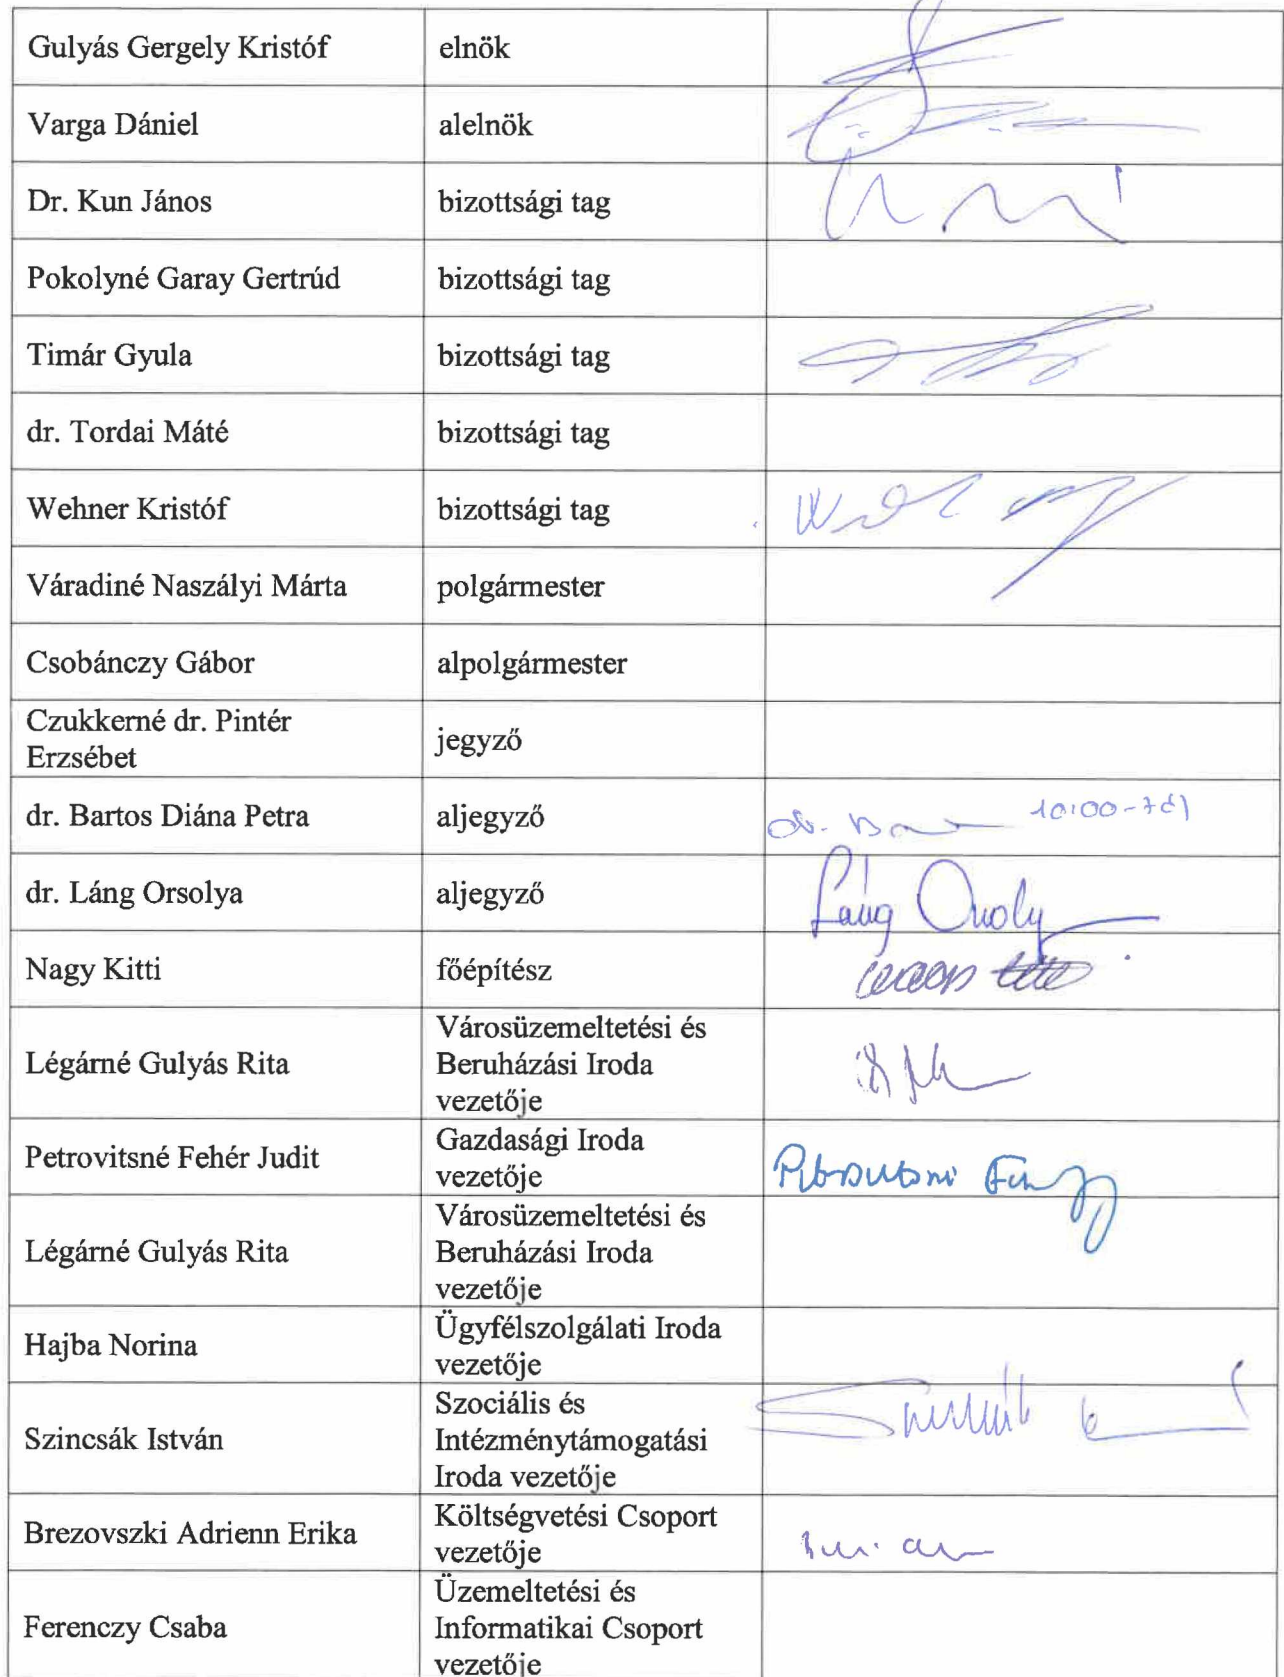 Gulyás Gergely Kristóf elnök
Varga Dániel alelnök
Dr. Kun János bizottsági tag
Pokolyné Garay Gertrúd bizottsági tag
Timár Gyula bizottsági tag
dr. Tordai Máté bizottsági tag
Wehner Kristóf bizottsági tag
Váradiné Naszályi Márta polgármester
Csobánczy Gábor alpolgármester
Czukkerné dr. Pintér
Erzsébet
jegyző
dr. Bartos Diána Petra aljegyző dr. 10:00-tól
dr. Láng Orsolya aljegyző Láng Orsolya
Nagy Kitti főépítész
Légárné Gulyás Rita
Városüzemeltetési és
Beruházási Iroda
vezetője
Petrovitsné Fehér Judit
Gazdasági Iroda
vezetője
Petrovitsné
Légárné Gulyás Rita
Városüzemeltetési és
Beruházási Iroda
vezetője
Hajba Norina
Ügyfélszolgálati Iroda
vezetője
Szincsák István
Szociális és
Intézménytámogatási
Iroda vezetője
Brezovszki Adrienn Erika
Költségvetési Csoport
vezetője
Ferenczy Csaba
Üzemeltetési és
Informatikai Csoport
vezetője